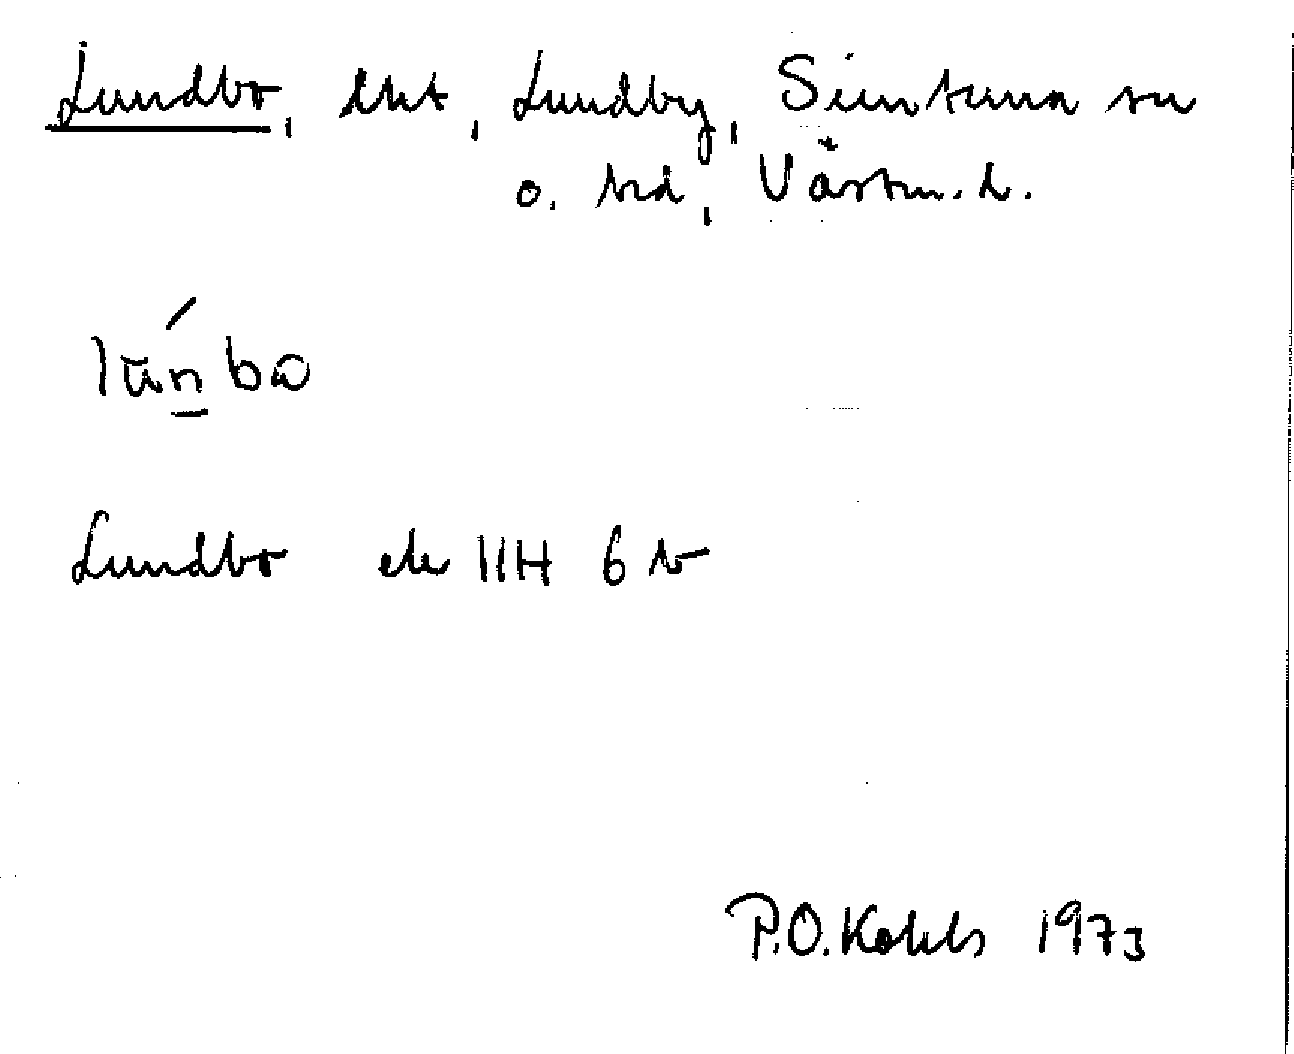 Lundbo, lht, Lundby, Simtuna sn
o. hd, Västm. l.
lún̲bo
Lundbo ek 11H 6 b
P.O. Kohls 1973